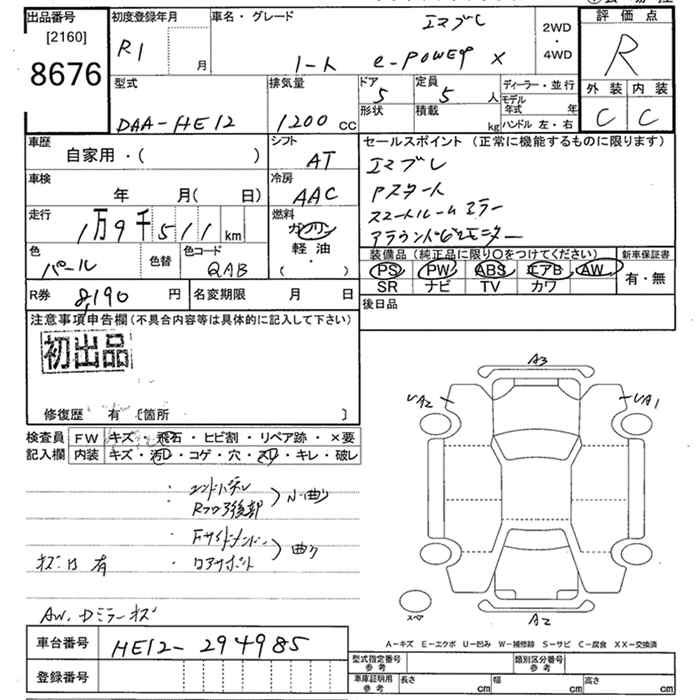 出品番号
[2160]
8676
初度登録年月
R1
月
車名・グレード
エマブレ
ノート e-POWER X
2WD
・
4WD
評価点
R
外装 内装
C C
型式
DAA-HE12
排気量
1200 cc
ドア
5
形状
定員
5 人
積載
kg
ディーラー・並行
モデル年式 年
ハンドル 左・右
車歴
自家用・( )
シフト
AT
車検
年 月( 日)
冷房
AAC
走行
1万9千511 km
燃料
ガソリン
軽油
( ・ )
色
パール
色替
色コード
QAB
セールスポイント(正常に機能するものに限ります)
エマブレ
Pスタート
スマートルームミラー
アラウンドビューモニター
装備品(純正品に限り○をつけてください)
PS PW ABS エアB AW
SR ナビ TV カワ
新車保証書
有・無
R券 8,190 円
名変期限 月 日
後日品
注意事項申告欄(不具合内容等は具体的に記入して下さい)
初出品
修復歴 有 〔箇所 〕
検査員
記入欄
FW キズ・飛石・ヒビ割・リペア跡・×要
内装 キズ・汚レ・コゲ・穴・スレ・キレ・破レ
・エンドパネル
Rフロア後部
小曲り
・Fサイドメンバー
・コアサポート
曲り
キズ凹有
AW、Dミラーキズ
A3
UA2
UA1
スペア
A2
A-キズ E-エクボ U-凹み W-補修跡 S-サビ C-腐食 XX-交換済
車台番号
HE12-294985
登録番号
型式指定番号
参考
類別区分番号
参考
車庫証明用
参考
長さ cm
幅 cm
高さ cm